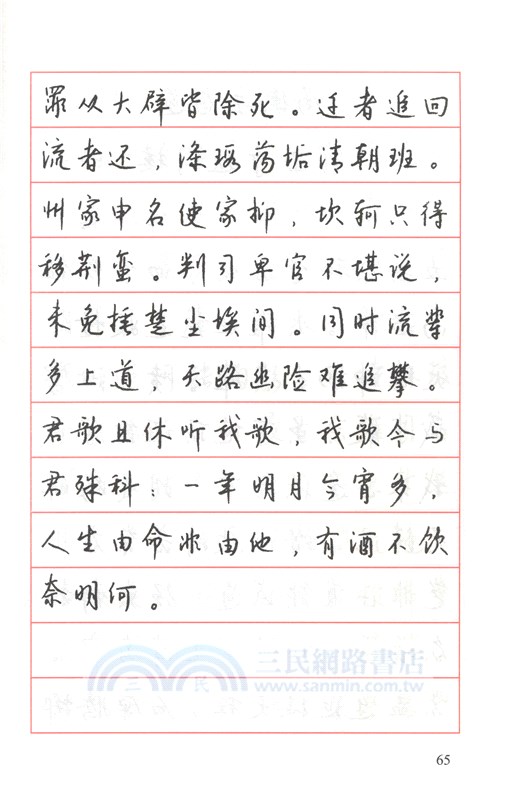 罪从大辟皆除死。迁者追回
流者还，涤瑕荡垢清朝班。
州家申名使家抑，坎轲只得
移荆蛮。判司卑官不堪说，
未免捶楚尘埃间。同时流辈
多上道，天路幽险难追攀。
君歌且休听我歌，我歌今与
君殊科：一年明月今宵多，
人生由命非由他，有酒不饮
奈明何。
三民網路書店
三民
www.sanmin.com.tw
65